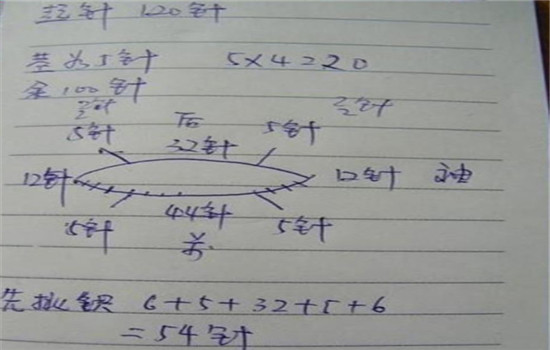 起针 120针
茎为5针 5×4=20
余100针
5针 后 5针
32针
12针 12针 袖
44针
5针 前 5针
先挑织 6+5+32+5+6
=54针